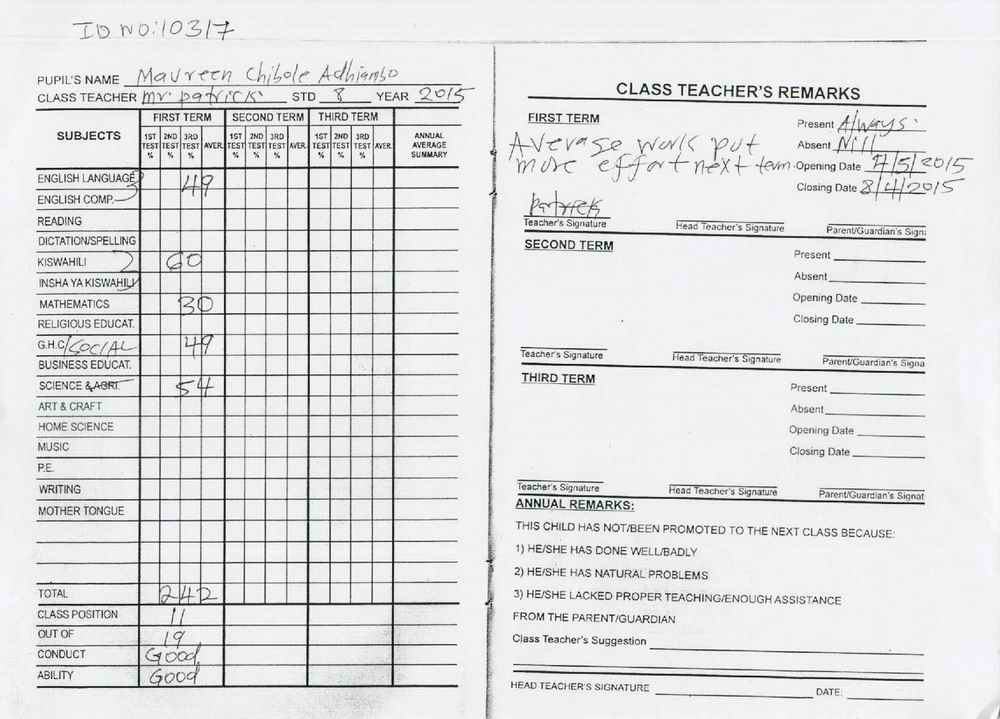 ID NO:10317
PUPIL'S NAME Maureen Chibole Adhiambo
CLASS TEACHER Mr. Patrick. STD 8 YEAR 2015
SUBJECTS FIRST TERM SECOND TERM THIRD TERM ANNUAL AVERAGE SUMMARY
1ST TEST % 2ND TEST % 3RD TEST % AVER. 1ST TEST % 2ND TEST % 3RD TEST % AVER. 1ST TEST % 2ND TEST % 3RD TEST % AVER.
ENGLISH LANGUAGE 49
ENGLISH COMP.
READING
DICTATION/SPELLING
KISWAHILI 60
INSHA YA KISWAHILI
MATHEMATICS 30
RELIGIOUS EDUCAT.
G.H.C/SOCIAL 49
BUSINESS EDUCAT.
SCIENCE & AGRI. 54
ART & CRAFT
HOME SCIENCE
MUSIC
P.E.
WRITING
MOTHER TONGUE
TOTAL 242
CLASS POSITION 11
OUT OF 19
CONDUCT Good
ABILITY Good
CLASS TEACHER'S REMARKS
FIRST TERM
Present Always.
Average work put
Absent Nill
more effort next term. Opening Date /5/2015
Closing Date 8/4/2015
Patrick
Teacher's Signature Head Teacher's Signature Parent/Guardian's Sign
SECOND TERM
Present
Absent
Opening Date
Closing Date
Teacher's Signature Head Teacher's Signature Parent/Guardian's Signa
THIRD TERM
Present
Absent
Opening Date
Closing Date
Teacher's Signature Head Teacher's Signature Parent/Guardian's Signat
ANNUAL REMARKS:
THIS CHILD HAS NOT/BEEN PROMOTED TO THE NEXT CLASS BECAUSE:
1) HE/SHE HAS DONE WELL/BADLY
2) HE/SHE HAS NATURAL PROBLEMS
3) HE/SHE LACKED PROPER TEACHING/ENOUGH ASSISTANCE
FROM THE PARENT/GUARDIAN
Class Teacher's Suggestion
HEAD TEACHER'S SIGNATURE DATE: